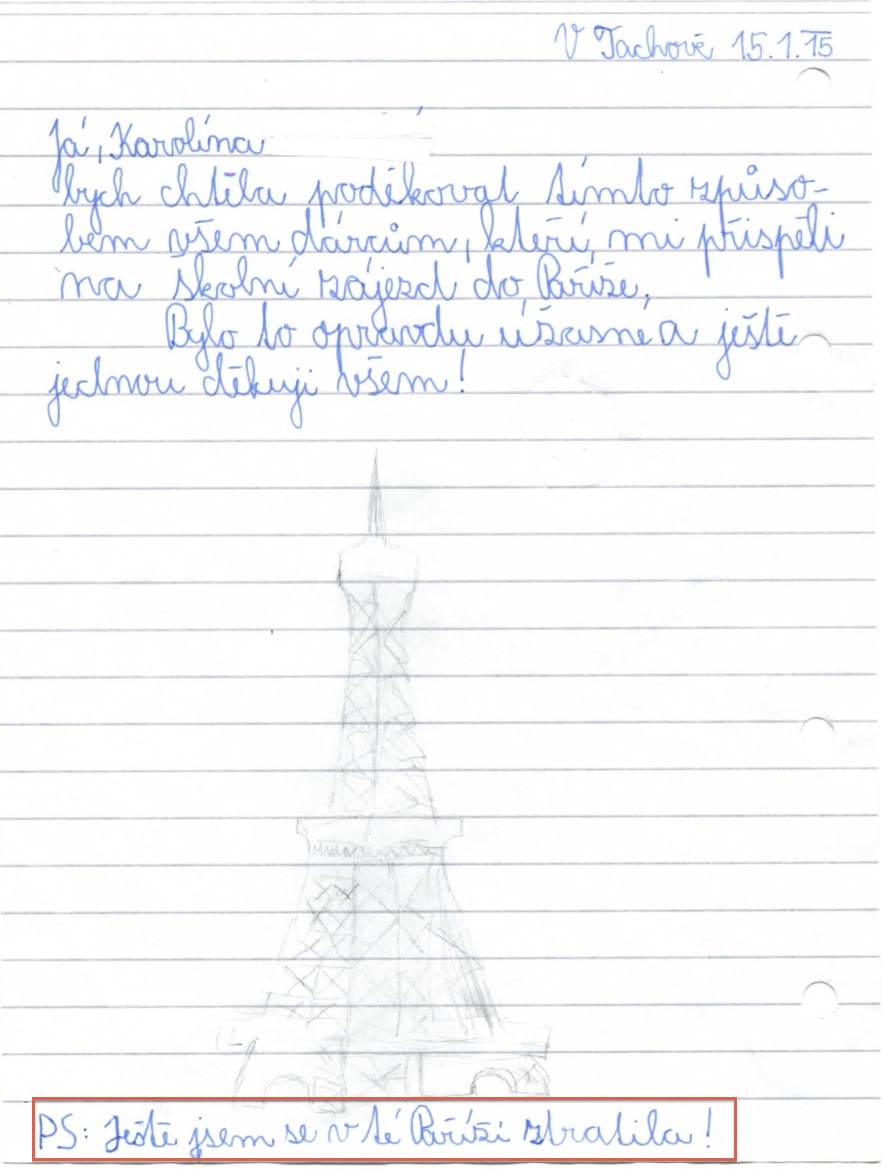 V Tachově 15.1.15
Já, Karolína
bych chtěla poděkovat tímto způso-
bem všem dárcům, kteří mi přispěli
na školní zájezd do Paříže.
Bylo to opravdu úžasné a ještě
jednou děkuji všem!
PS: Ještě jsem se v té Paříži ztratila!